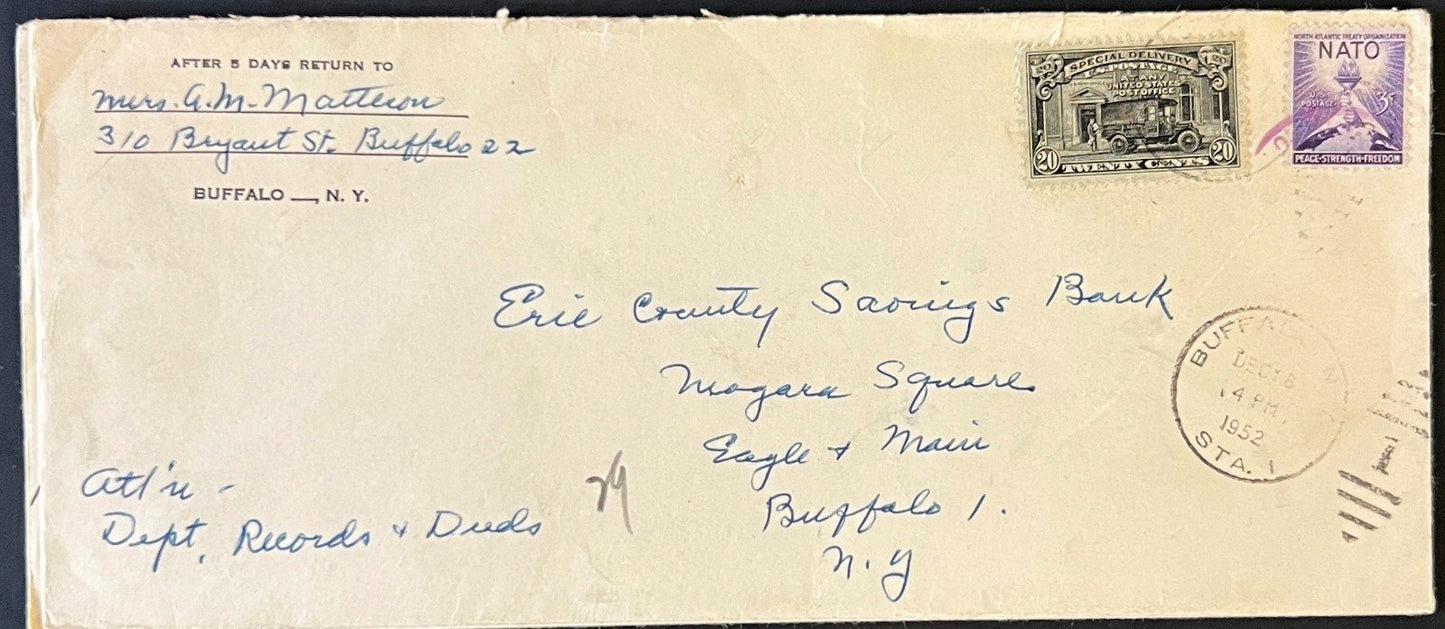 AFTER 5 DAYS RETURN TO
Mrs. A. M. Matteson
310 Bryant St. Buffalo 22
BUFFALO __, N. Y.
SPECIAL DELIVERY
U.S. POSTAGE
AT ANY
UNITED STATES
POST OFFICE
20 20
20 TWENTY CENTS 20
NORTH ATLANTIC TREATY ORGANIZATION
NATO
U.S. POSTAGE
3¢
PEACE-STRENGTH-FREEDOM
Erie County Savings Bank
Niagara Square
Eagle + Main
Buffalo 1.
N. Y
Att'n -
Dept. Records + Deeds
BUFFALO
DEC 18
4 PM
1952
STA. 1